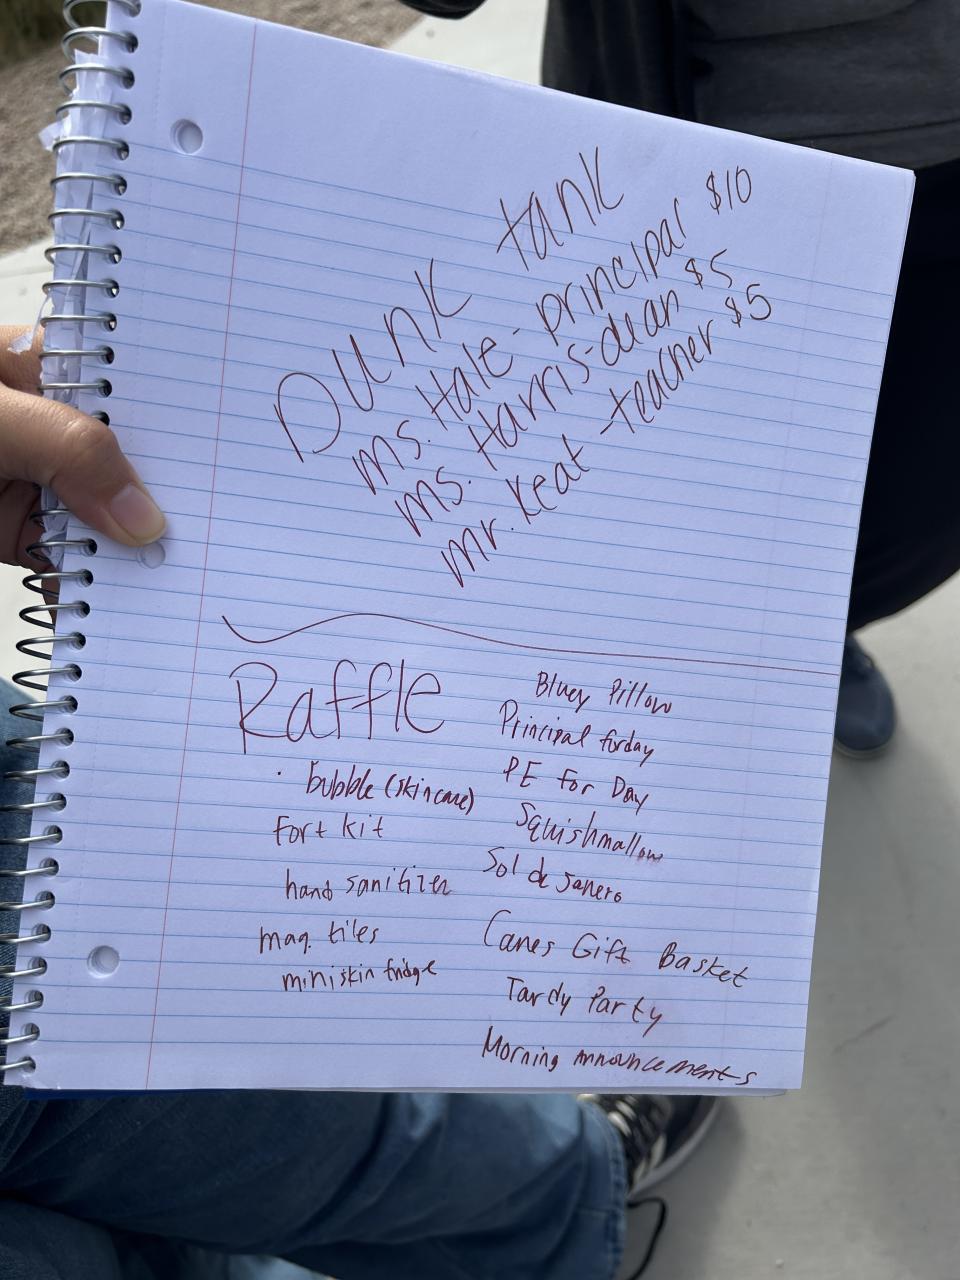 Dunk tank
Ms. Hale - principal $10
Ms. Harris - dean $5
Mr. Keat - teacher $5
Raffle
· bubble (skincare)
Fort kit
hand sanitizer
mag. tiles
mini skin fridge
Bluey Pillow
Principal forday
PE for Day
Squishmallow
Sol de Janero
Canes Gift Basket
Tardy Party
Morning Announcements